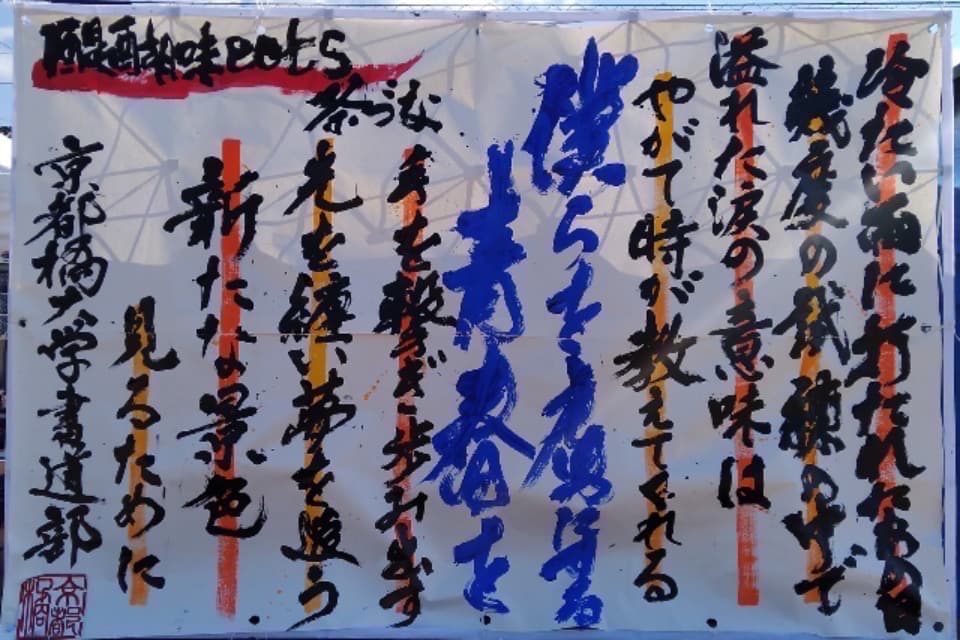 冷たい雨に打たれたあの日
幾度の試練の中で
溢れた涙の意味は
やがて時が教えてくれる
僕ら
青春を
手を繋ぎ歩み出す
光を纏い夢を追う
新たな景色
見るために
醍醐味
京都橘大学書道部